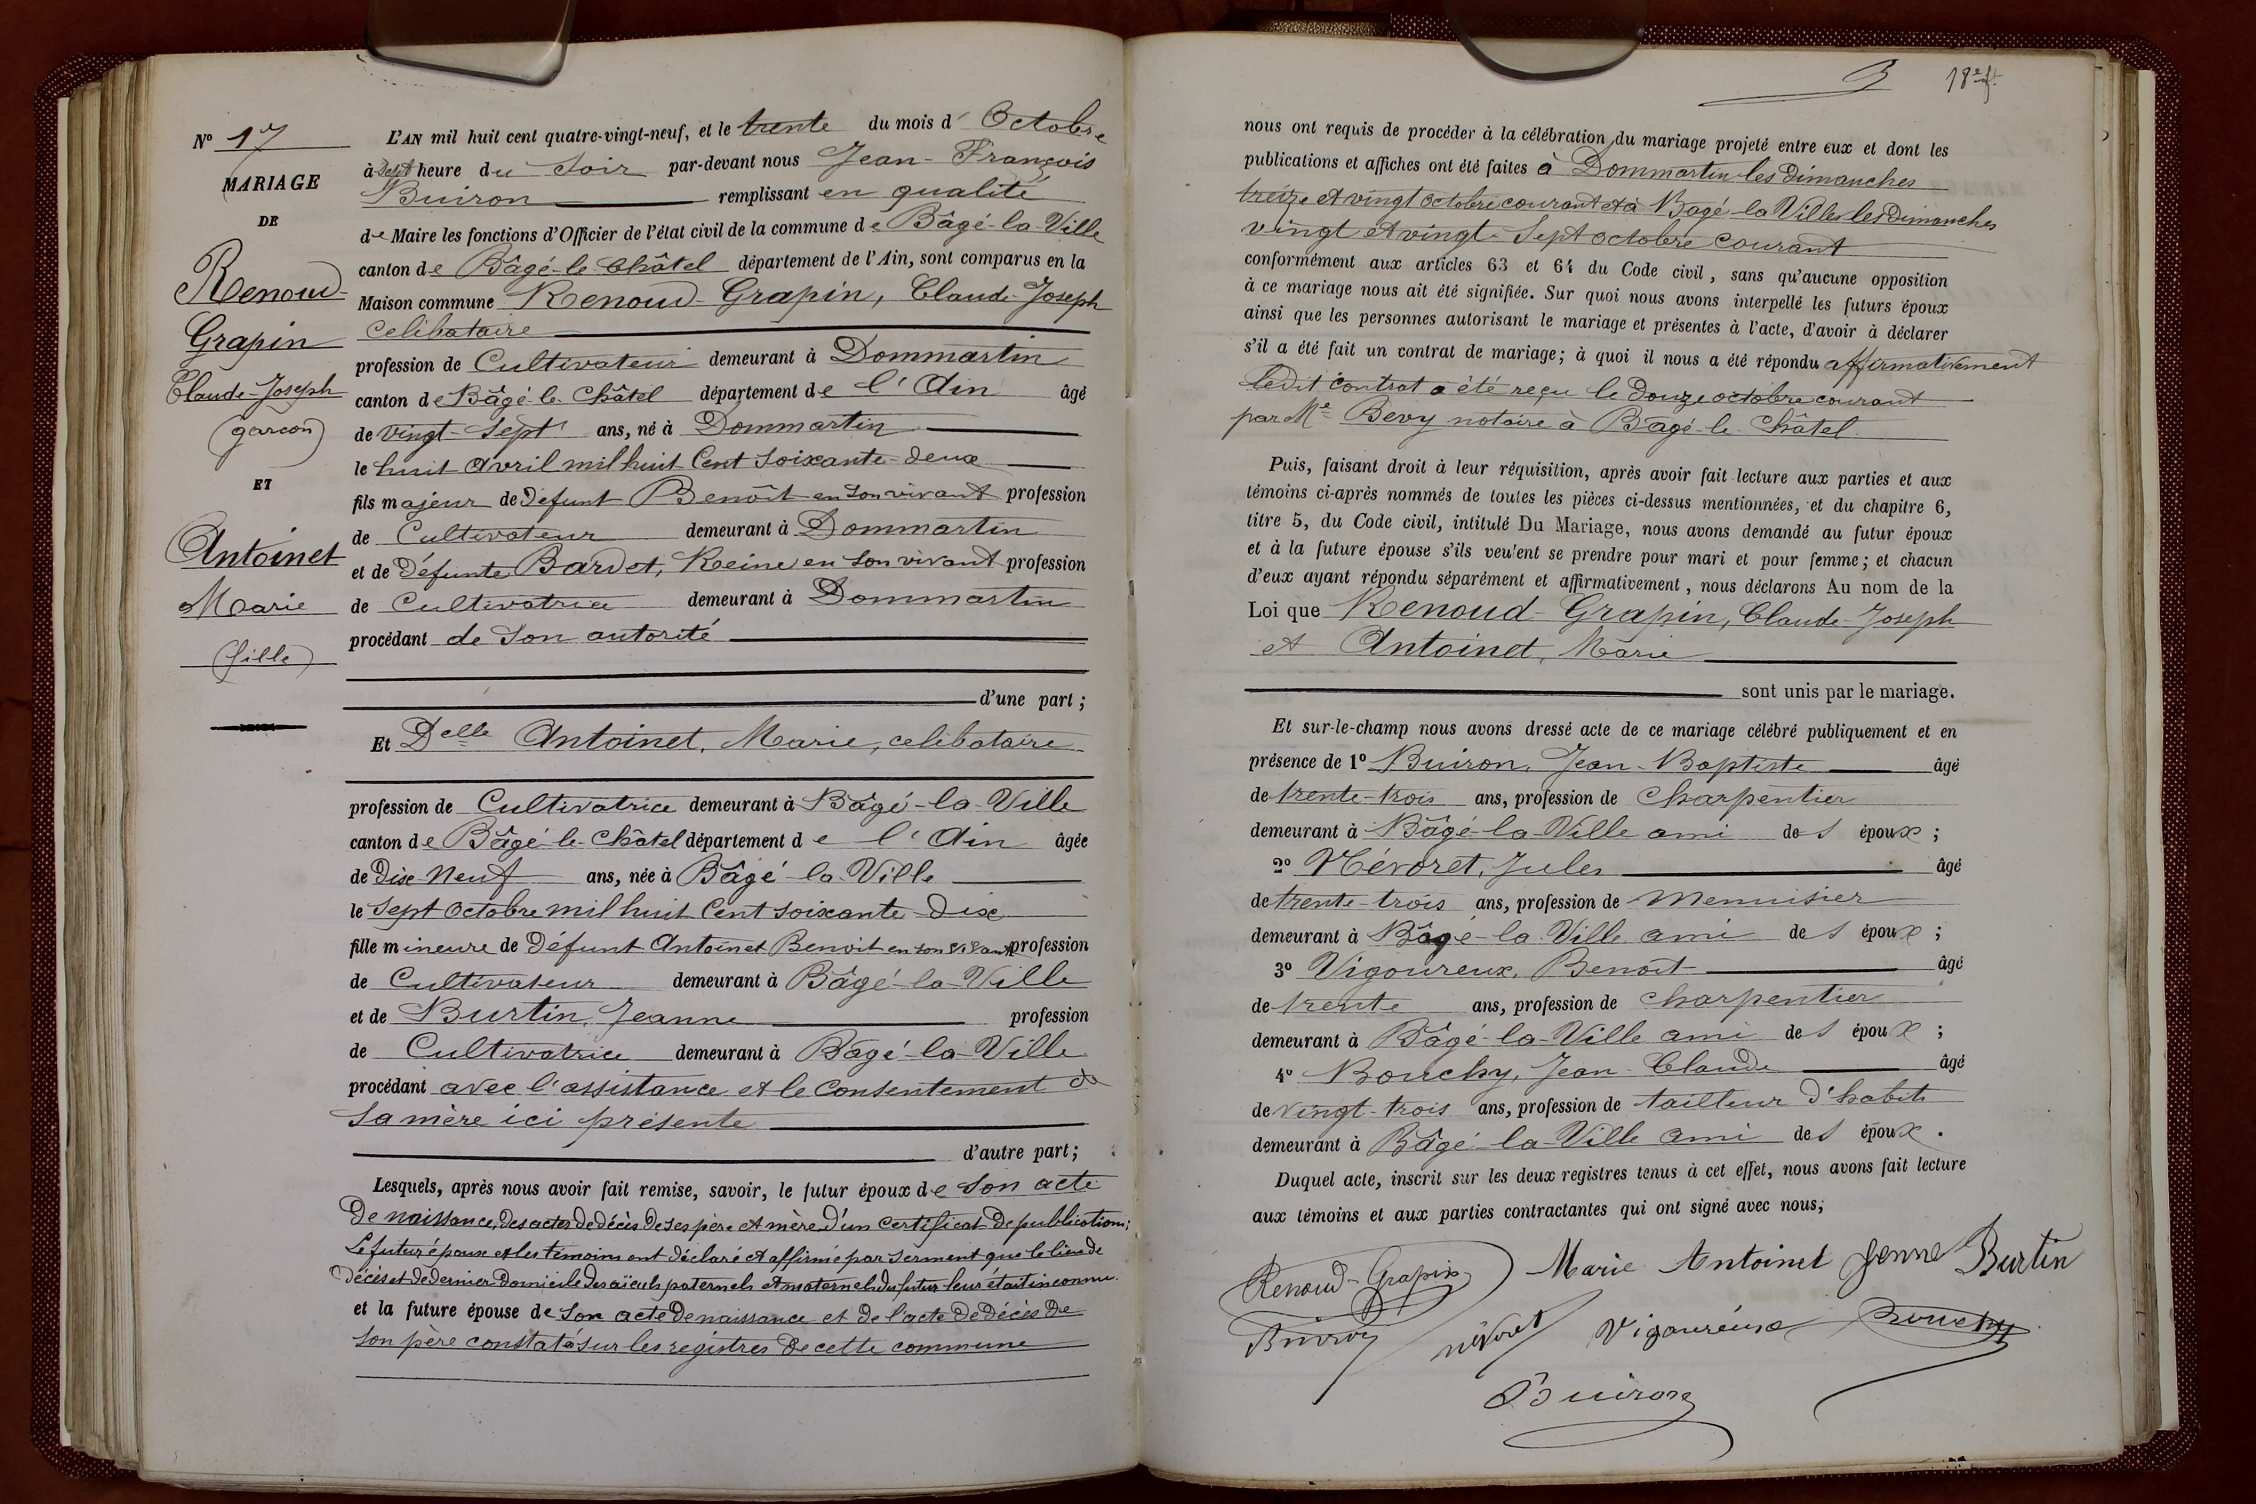 N° 17
MARIAGE
DE
Renoud-
Grapin
Claude-Joseph
(garcon)
ET
Antoinet
Marie
(fille)
L'AN mil huit cent quatre-vingt-neuf, et le trente du mois d' Octobre
à Sept heure du Soir par-devant nous Jean-François
Buiron remplissant en qualité
de Maire les fonctions d'Officier de l'état civil de la commune de Bâgé-la-Ville
canton de Bâgé-le-Châtel département de l'Ain, sont comparus en la
Maison commune Renoud-Grapin, Claude-Joseph
celibataire
profession de Cultivateur demeurant à Dommartin
canton de Bâgé-le-Châtel département de l'Ain âgé
de vingt-Sept ans, né à Dommartin
le huit avril mil huit Cent Soixante-deux
fils majeur de défunt Benoît en son vivant profession
de Cultivateur demeurant à Dommartin
et de défunte Bardet, Reine en son vivant profession
de Cultivatrice demeurant à Dommartin
procédant de Son autorité
d'une part ;
Et Delle Antoinet, Marie, celibataire
profession de Cultivatrice demeurant à Bâgé-la-Ville
canton de Bâgé-le-Châtel département de l'Ain âgée
de Dix Neuf ans, née à Bâgé-la-Ville
le Sept Octobre mil huit Cent soixante-Dix
fille mineure de défunt Antoinet Benoit en son vivant profession
de Cultivateur demeurant à Bâgé-la-Ville
et de Burtin, Jeanne profession
de Cultivatrice demeurant à Bâgé-la-Ville
procédant avec l'assistance et le Consentement de
Sa mère ici présente
d'autre part ;
Lesquels, après nous avoir fait remise, savoir, le futur époux de Son acte
De naissance, des actes de décès de ses père et mère, d'un certificat de publications ;
Le futur époux et les témoins ont déclaré et affirmé par serment que le lieu de
décès et de dernier domicile des aïeuls paternels et maternels du futur leur était inconnu.
et la future épouse de son acte de naissance et de l'acte de décès de
son père constatés sur les registres de cette commune
18e ft.
nous ont requis de procéder à la célébration du mariage projeté entre eux et dont les
publications et affiches ont été faites à Dommartin les Dimanches
treize et vingt octobre courant et à Bagé-la Ville les Dimanches
vingt et vingt-Sept octobre courant
conformément aux articles 63 et 64 du Code civil, sans qu'aucune opposition
à ce mariage nous ait été signifiée. Sur quoi nous avons interpellé les futurs époux
ainsi que les personnes autorisant le mariage et présentes à l'acte, d'avoir à déclarer
s'il a été fait un contrat de mariage ; à quoi il nous a été répondu affirmativement
ledit contrat a été reçu le douze octobre courant
par Me Bevy notaire à Bâgé-le-Châtel
Puis, faisant droit à leur réquisition, après avoir fait lecture aux parties et aux
témoins ci-après nommés de toutes les pièces ci-dessus mentionnées, et du chapitre 6,
titre 5, du Code civil, intitulé Du Mariage, nous avons demandé au futur époux
et à la future épouse s'ils veulent se prendre pour mari et pour femme ; et chacun
d'eux ayant répondu séparément et affirmativement, nous déclarons Au nom de la
Loi que Renoud-Grapin, Claude-Joseph
et Antoinet, Marie
sont unis par le mariage.
Et sur-le-champ nous avons dressé acte de ce mariage célébré publiquement et en
présence de 1° Buiron, Jean-Baptiste âgé
de trente-trois ans, profession de Charpentier
demeurant à Bâgé-la-Ville ami des époux ;
2° Névoret, Jules âgé
de trente-trois ans, profession de Menuisier
demeurant à Bâgé-la-Ville ami des époux ;
3° Vigoureux, Benoît âgé
de trente ans, profession de Charpentier
demeurant à Bâgé-la-Ville ami des époux ;
4° Bouchy, Jean-Claude âgé
de vingt-trois ans, profession de tailleur d'habits
demeurant à Bâgé-la-Ville ami des époux.
Duquel acte, inscrit sur les deux registres tenus à cet effet, nous avons fait lecture
aux témoins et aux parties contractantes qui ont signé avec nous ;
Renoud-Grapin Marie Antoinet Jenne Burtin
Buiron névoret Vigoureux Bouchy
Buiron